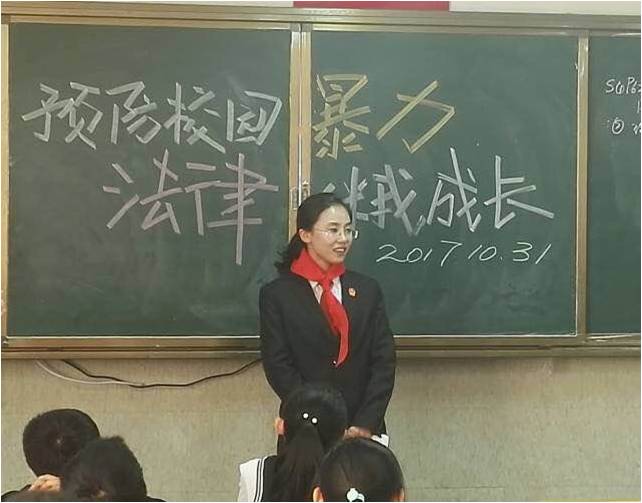 预防校园暴力
法律伴我成长
2017 10.31